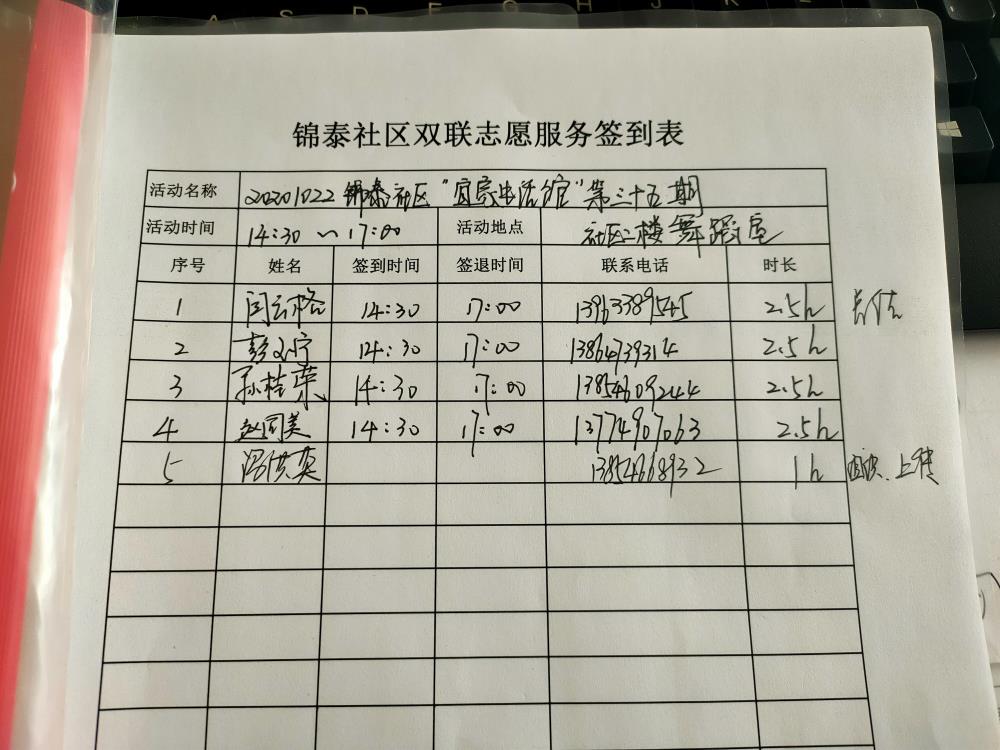 A S D F G H J K L
锦泰社区双联志愿服务签到表
活动名称 20201022 锦泰社区"宜家生活馆"第三十五期
活动时间 14:30~17:00 活动地点 社区二楼舞蹈室
序号 姓名 签到时间 签退时间 联系电话 时长
1 闫云格 14:30 17:00 13963389545 2.5h
2 彭文宁 14:30 17:00 13864739314 2.5h
3 孙桂荣 14:30 17:00 13854609244 2.5h
4 赵同美 14:30 17:00 13774907063 2.5h
5 冯洪英 13854668932 1h 上传